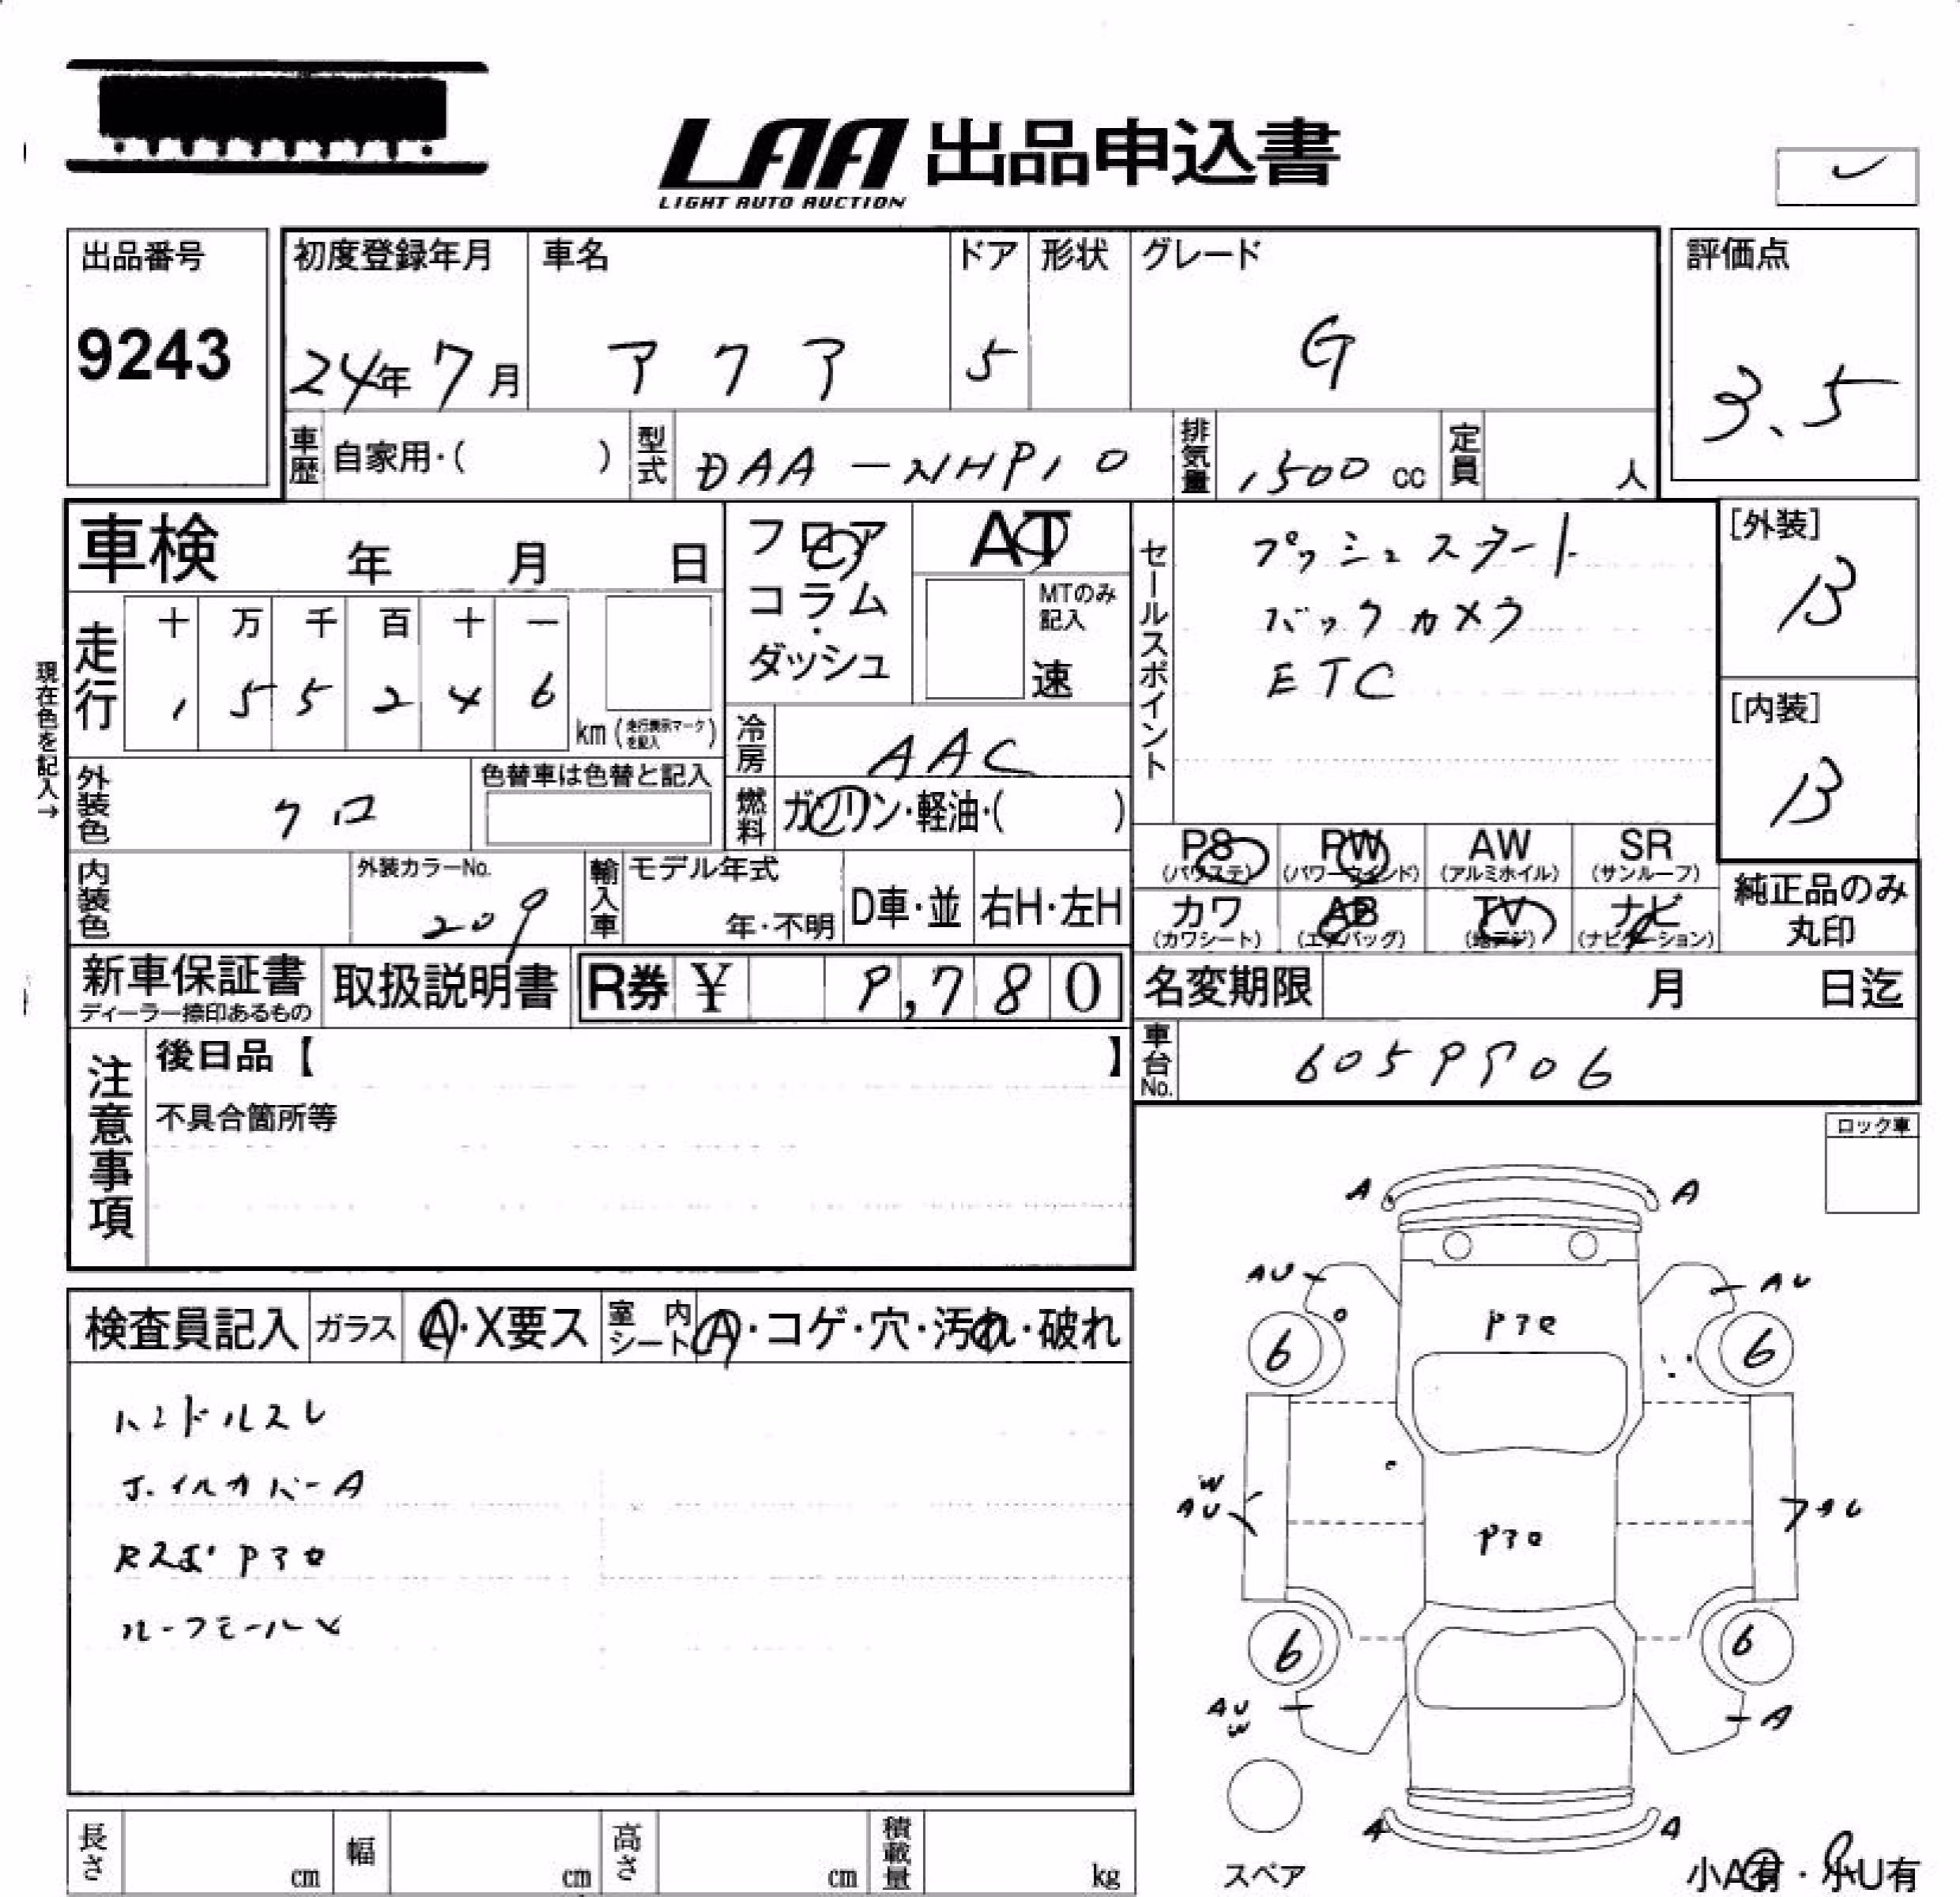 LAA 出品申込書
LIGHT AUTO AUCTION
出品番号
9243
初度登録年月
24年 7月
車名
アクア
ドア
5
形状
グレード
G
評価点
3.5
車歴
自家用・( )
型式
DAA-NHP10
排気量
1500 cc
定員
人
車検 年 月 日
フロア
コラム
・
ダッシュ
AT
MTのみ
記入
速
セールスポイント
プッシュスタート
バックカメラ
ETC
[外装]
B
[内装]
B
現在色を記入→
走行
十 万 千 百 十 一
1 5 5 2 4 6
km (走行機示マークを記入)
冷房
AAC
燃料
ガソリン・軽油・( )
外装色
クロ
色替車は色替と記入
内装色
外装カラーNo.
209
輸入車
モデル年式
年・不明
D車・並
右H・左H
PS
(パワステ)
PW
(パワーウインド)
AW
(アルミホイル)
SR
(サンルーフ)
カワ
(カワシート)
AB
(エアバッグ)
TV
(地デジ)
ナビ
(ナビゲーション)
純正品のみ
丸印
新車保証書
ディーラー捺印あるもの
取扱説明書
R券 ¥ 9,780
名変期限 月 日迄
車台No.
6059906
注意事項
後日品【 】
不具合箇所等
ロック車
検査員記入
ガラス
A・X要ス
室内
シート
A・コゲ・穴・汚れ・破れ
ハンドルスレ
ホイルカバーA
RスポPアセ
ルーフモール×
A A
AU AU
Pアセ
6 6
W
AU AU
Pアセ
6 6
AU
W
A
A A
スペア
小A有・小U有
長さ cm
幅 cm
高さ cm
積載量 kg